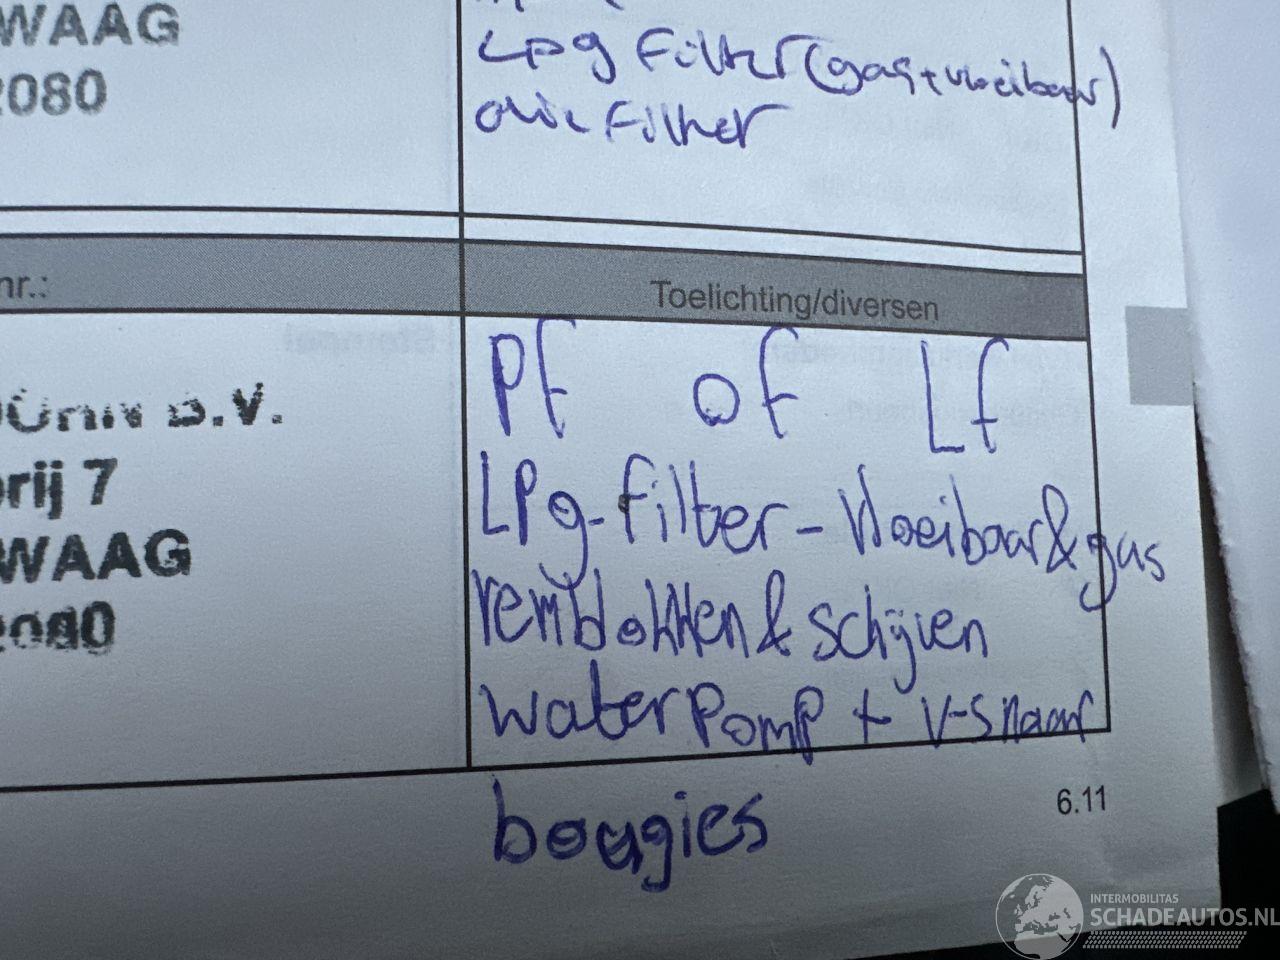 WAAG
2080
LPg Filter (gas+vloeibaar)
olie Filter
nr.:
Toelichting/diversen
B.V.
rij 7
WAAG
2080
PF of LF
LPg-filter-vloeibaar&gas
remblokken & schijven
waterpomp + v-snaar
bougies
6.11
INTERMOBILITAS
SCHADEAUTOS.NL